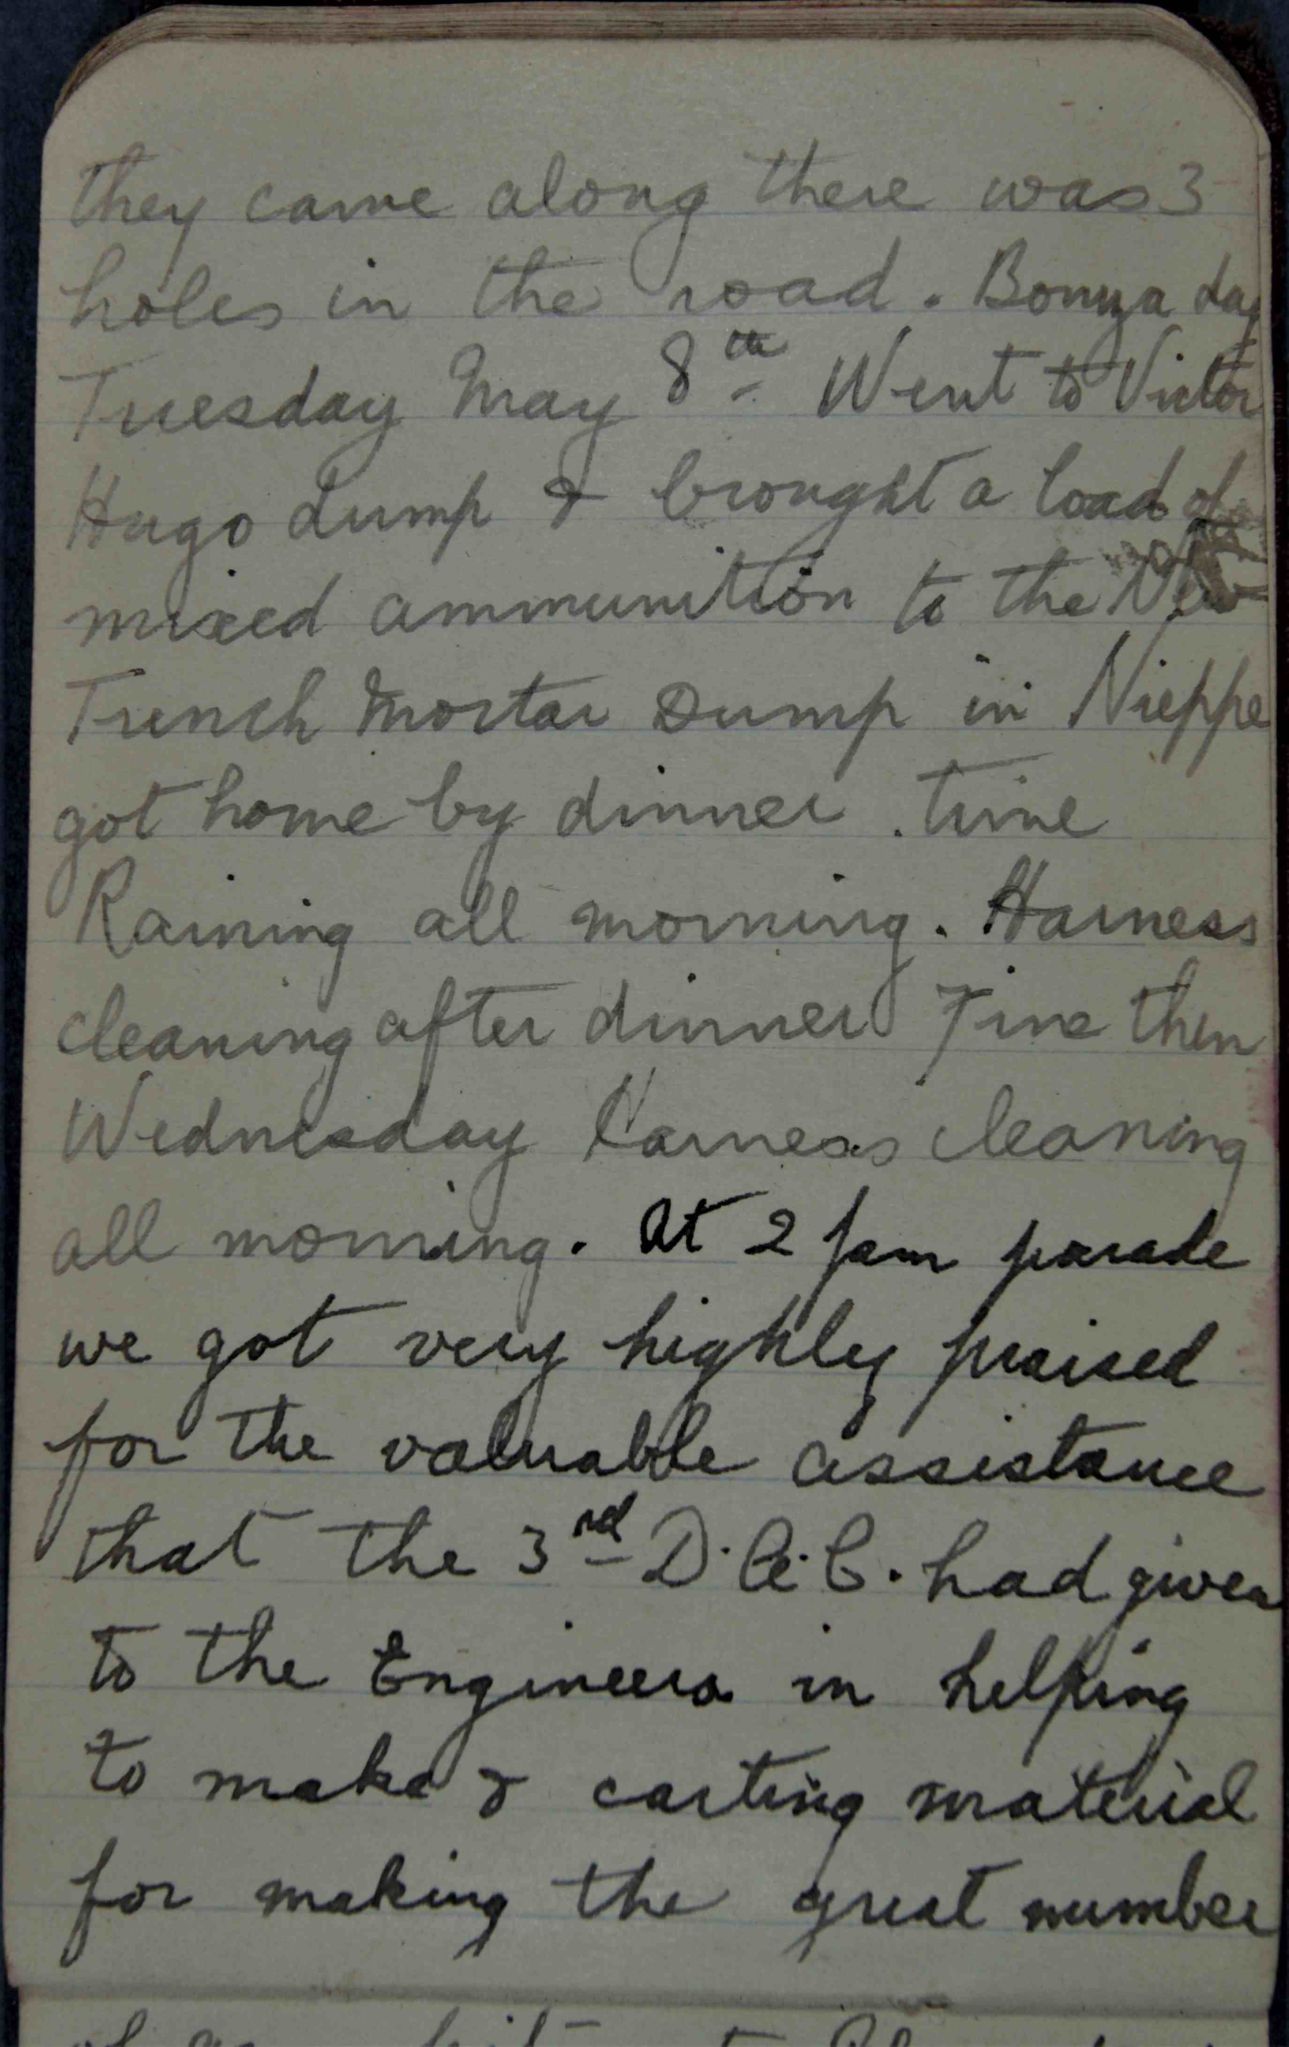 they came along there was 3
holes in the road. Bonza day
Tuesday May 8th Went to Victor
Hugo dump & brought a load of
mixed ammunition to the New
Trench Mortar Dump in Nieppe
got home by dinner . time
Raining all morning. Harness
cleaning after dinner Fine then
Wednesday Harness cleaning
all morning. At 2 pm parade
we got very highly praised
for the valuable assistance
that the 3rd D.A.C. had given
to the Engineers in helping
to make & carting material
for making the great number